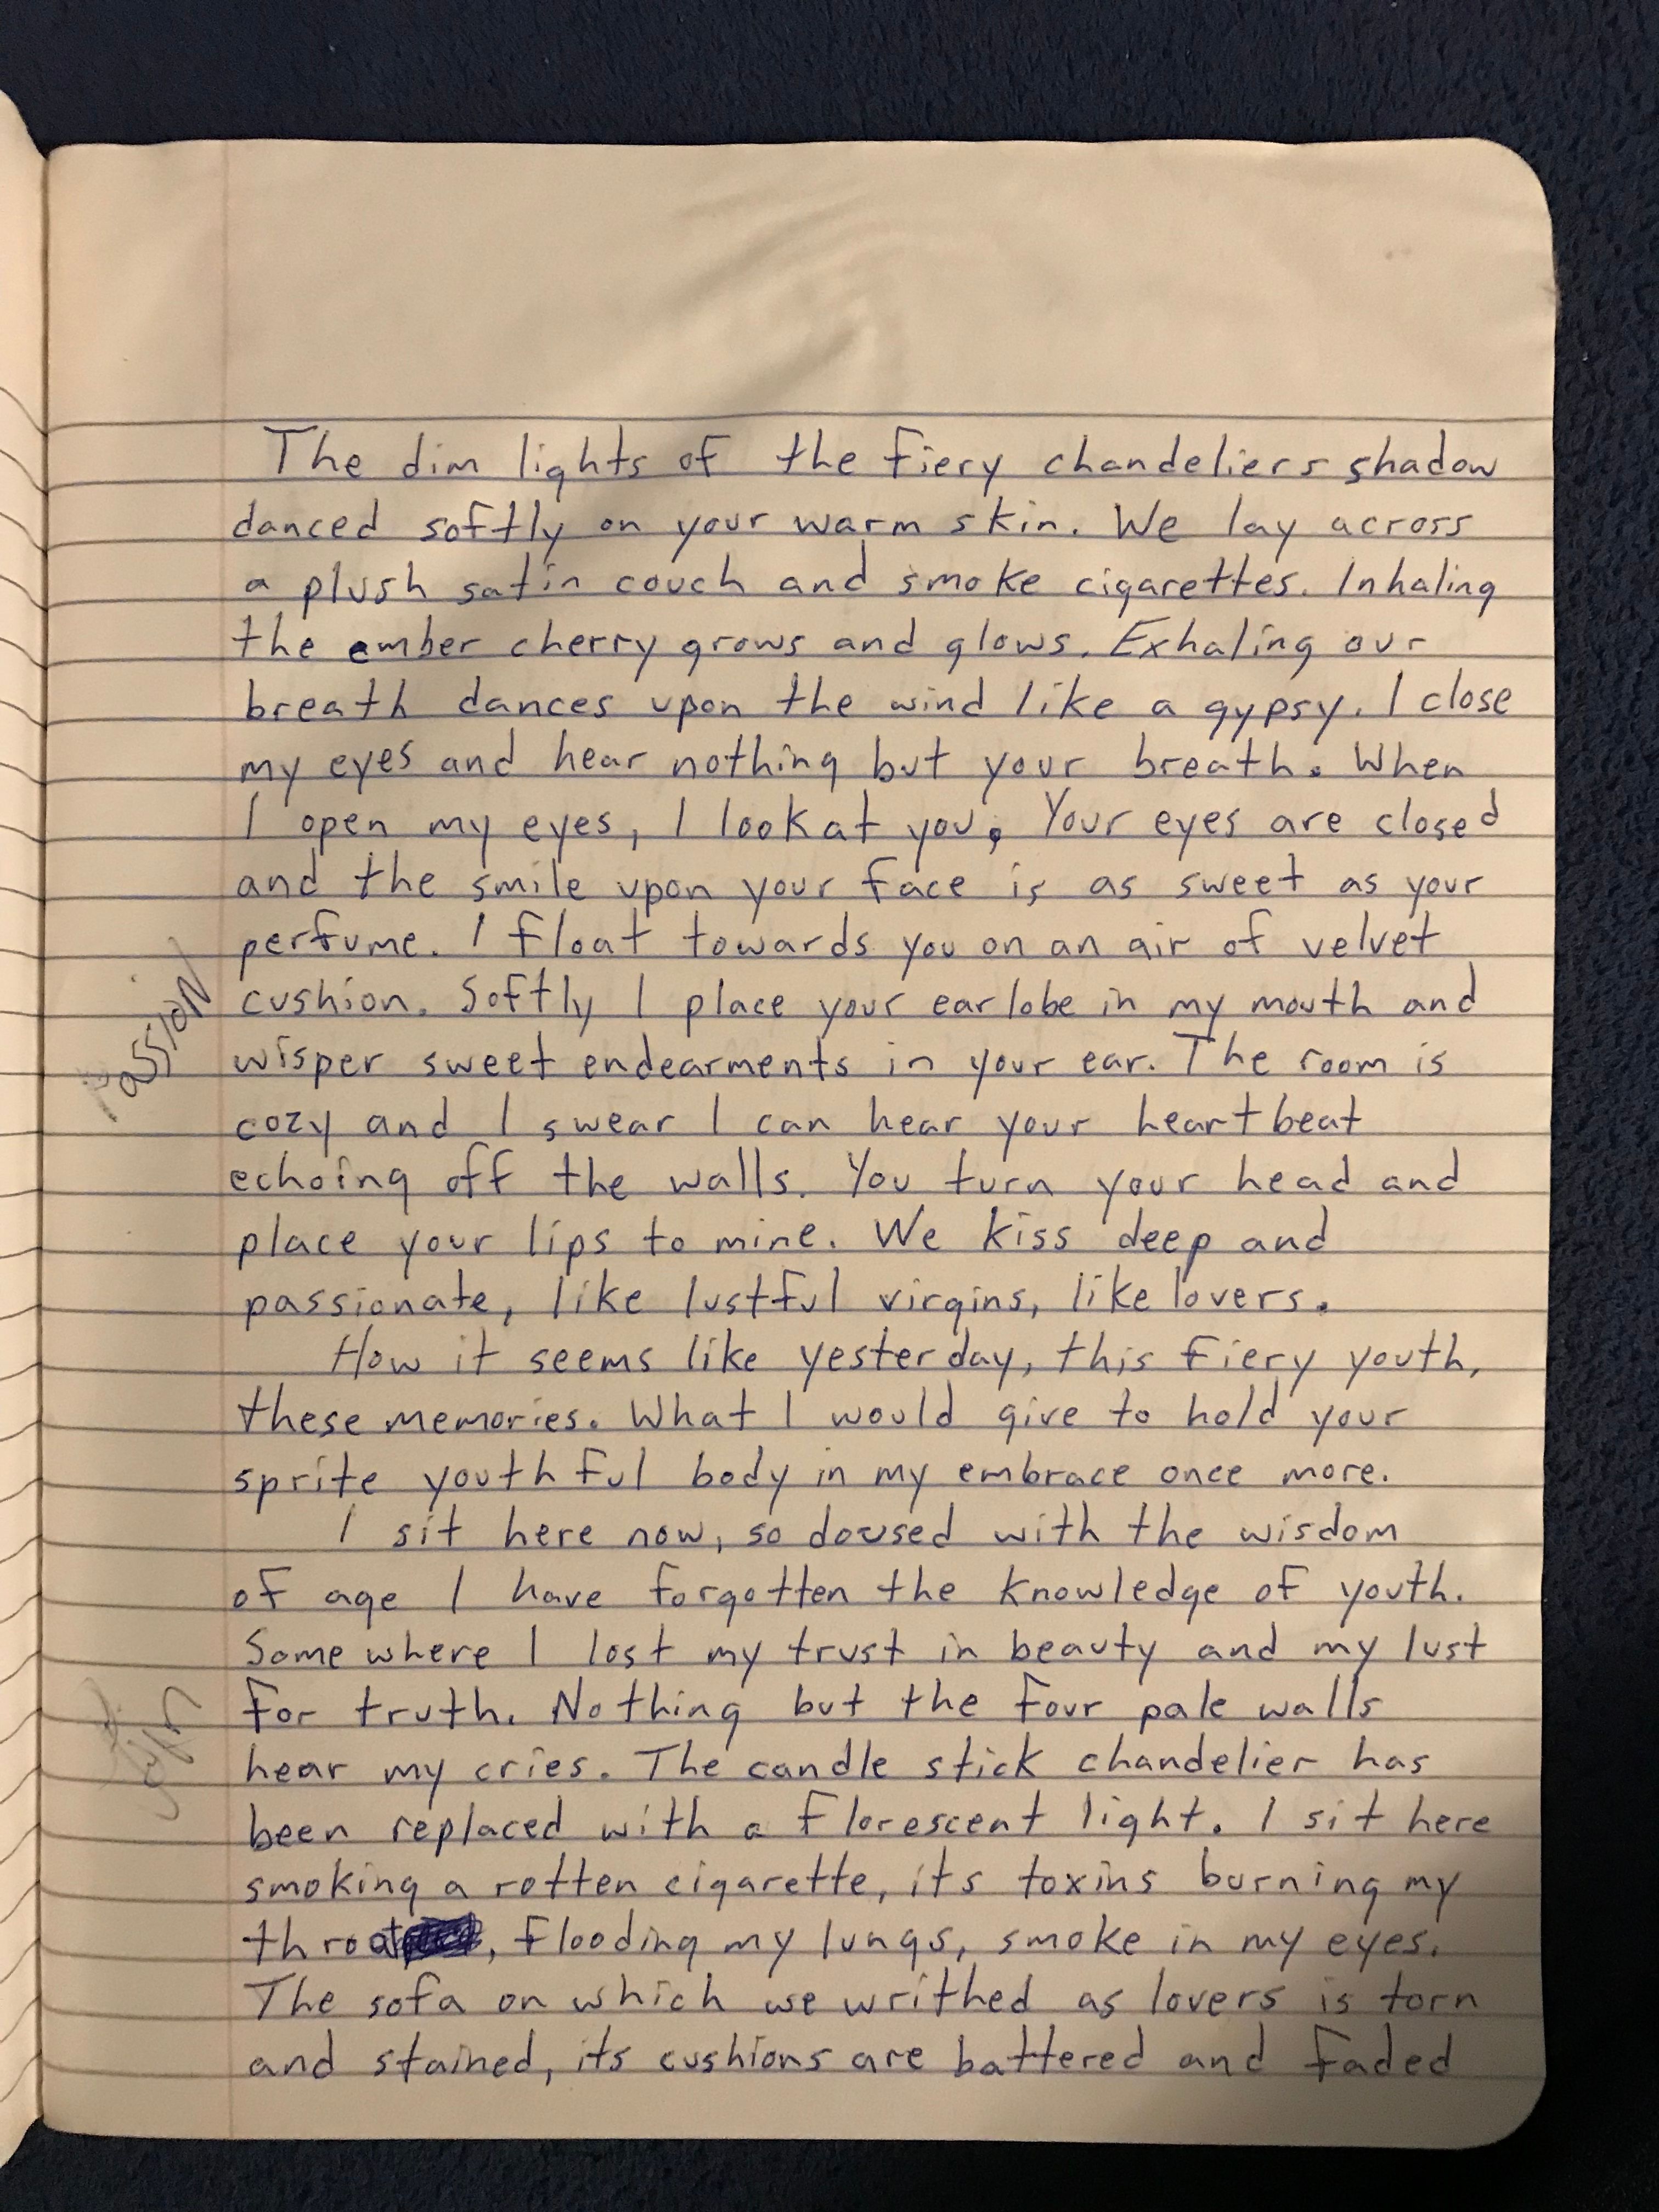 The dim lights of the fiery chandeliers shadow
danced softly on your warm skin. We lay across
a plush satin couch and smoke cigarettes. Inhaling
the ember cherry grows and glows. Exhaling our
breath dances upon the wind like a gypsy. I close
my eyes and hear nothing but your breath. When
I open my eyes, I look at you. Your eyes are closed
and the smile upon your face is as sweet as your
perfume. I float towards you on an air of velvet
cushion. Softly I place your earlobe in my mouth and
wisper sweet endearments in your ear. The room is
cozy and I swear I can hear your heartbeat
echoing off the walls. You turn your head and
place your lips to mine. We kiss deep and
passionate, like lustful virgins, like lovers.
How it seems like yesterday, this fiery youth,
these memories. What I would give to hold your
sprite youthful body in my embrace once more.
I sit here now, so doused with the wisdom
of age I have forgotten the knowledge of youth.
Somewhere I lost my trust in beauty and my lust
for truth. Nothing but the four pale walls
hear my cries. The candle stick chandelier has
been replaced with a florescent light. I sit here
smoking a rotten cigarette, its toxins burning my
throat, flooding my lungs, smoke in my eyes.
The sofa on which we writhed as lovers is torn
and stained, its cushions are battered and faded
Passion